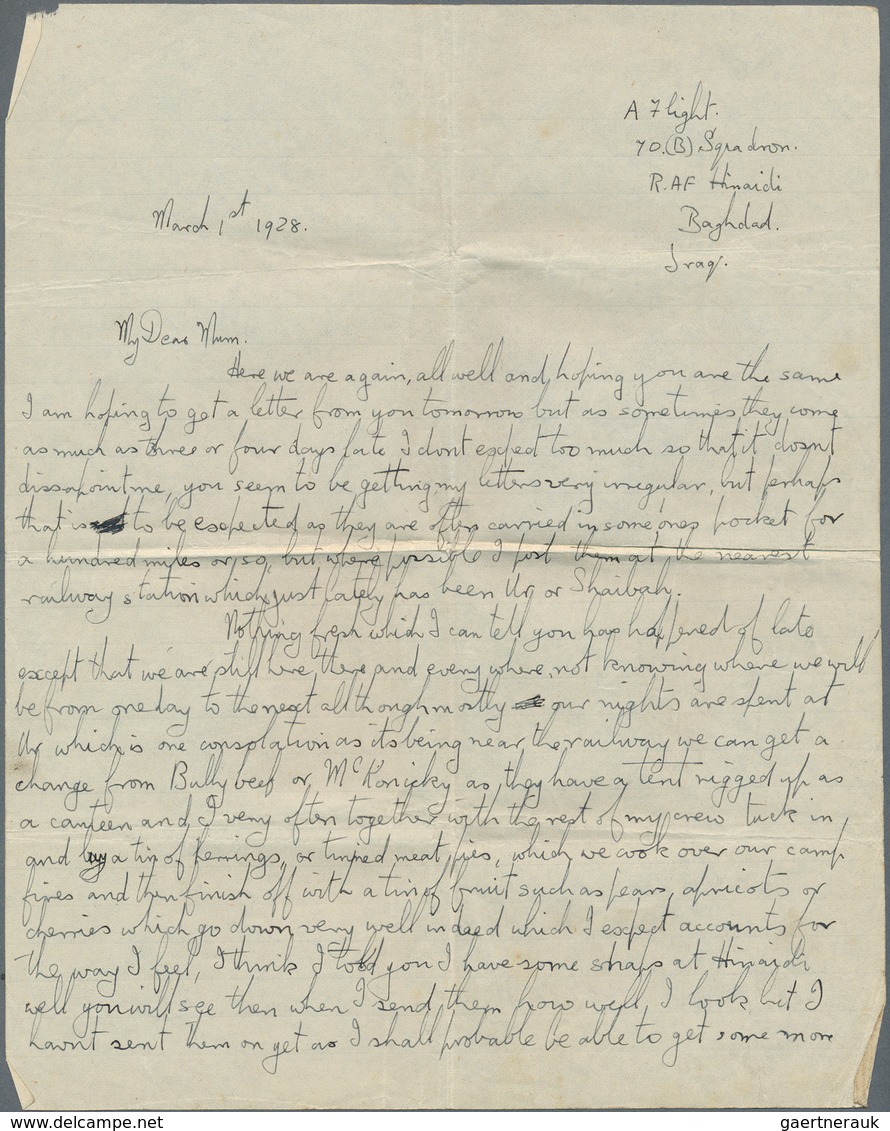 A Flight.
70.(B) Sqradron.
R.AF Hinaidi
Baghdad.
Iraq.
March 1st 1928.
My Dear Mum.
Here we are again, all well and hoping you are the same
I am hoping to get a letter from you tomorrow but as sometimes they come
as much as three or four days late I dont expect too much so that it dosnt
dissapoint me, you seem to be getting my letters very irregular, but perhaps
that is to be expected as they are often carried in someones pocket for
a hundred miles or so, but where possible I post them at the nearest
railway station which just lately has been Ur or Shaibah.
Nothing fresh which I can tell you has happened of late
except that we are still here, there and everywhere, not knowing where we will
be from one day to the next although mostly our nights are spent at
Ur which is one consolation as its being near the railway we can get a
change from Bully beef or McKonicky as they have a tent rigged up as
a canteen and I very often together with the rest of my crew tuck in,
and buy a tin of herrings, or tinned meat pies, which we cook over our camp
fires and then finish off with a tin of fruit such as pears, apricots or
cherries which go down very well indeed which I expect accounts for
the way I feel, I think I told you I have some snaps at Hinaidi
well you will see then when I send them how well I look but I
havnt sent them on yet as I shall probable be able to get some more
www.delcampe.net
gaertnerauk